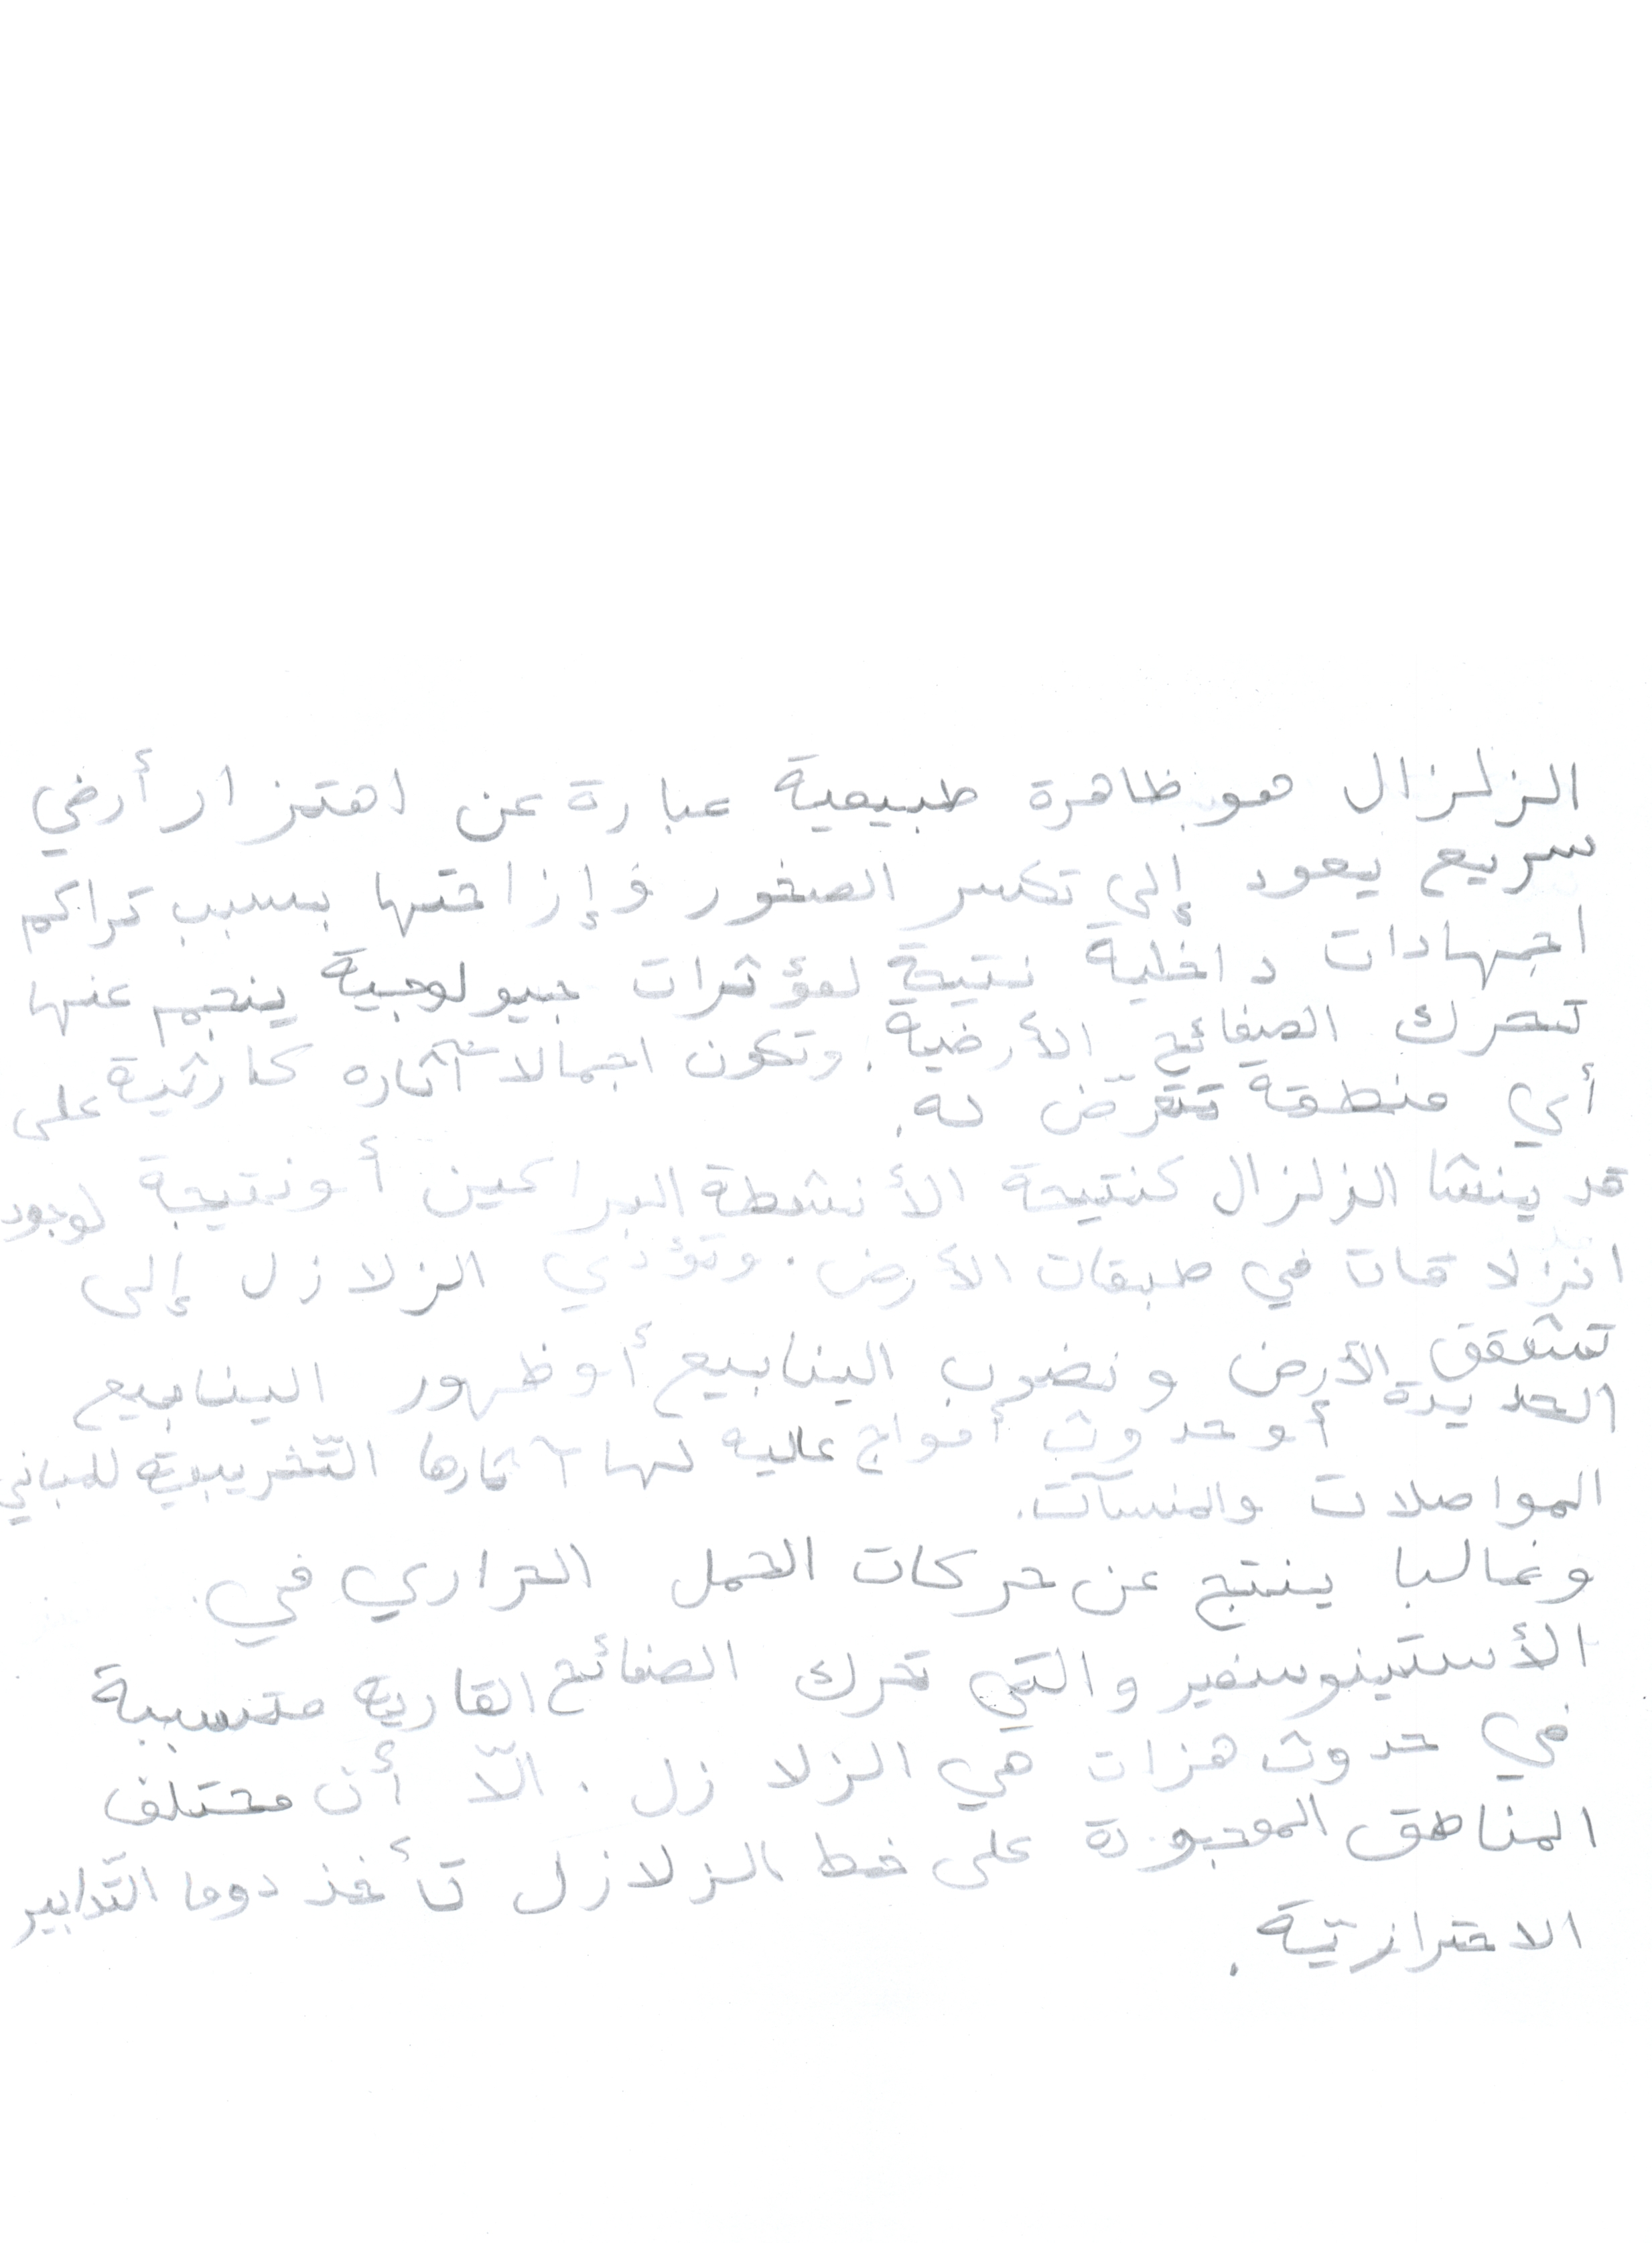 الزلزال هو ظاهرة طبيعية عبارة عن اهتزاز أرضي
سريع يعود إلى تكسر الصخور وإزاحتها بسبب تراكم
اجهادات داخلية نتيجة لمؤثرات جيولوجية ينجم عنها
تحرك الصفائح الأرضية. وتكون اجمالا آثاره كارثية على
أي منطقة تتعرّض له.
قد ينشأ الزلزال كنتيحة الأنشطة البراكين أو نتيجة لوجود
انزلاقات في طبقات الأرض. وتؤدي الزلازل إلى
تشقق الأرض ونضوب الينابيع أو ظهور الينابيع
الجديدة أو حدوث أمواج عاليه لها آثارها التّخريبية للمباني
المواصلات والمنسآت.
وغالبا ينتج عن حركات الحمل الحراري في
الأستينوسفير والتي تحرك الصفائح القاريه متسببة
في حدوث هزات هي الزلازل. الّا أن مختلف
المناطق الموجودة على خط الزلازل تأخذ دوما التّدابير
الاحترازيّة.